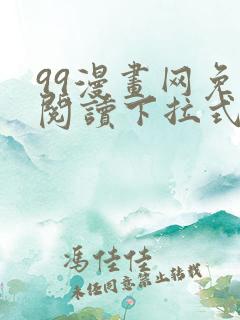 99漫畫网免
閱讀下拉式
馮佳佳
未经同意禁止转载